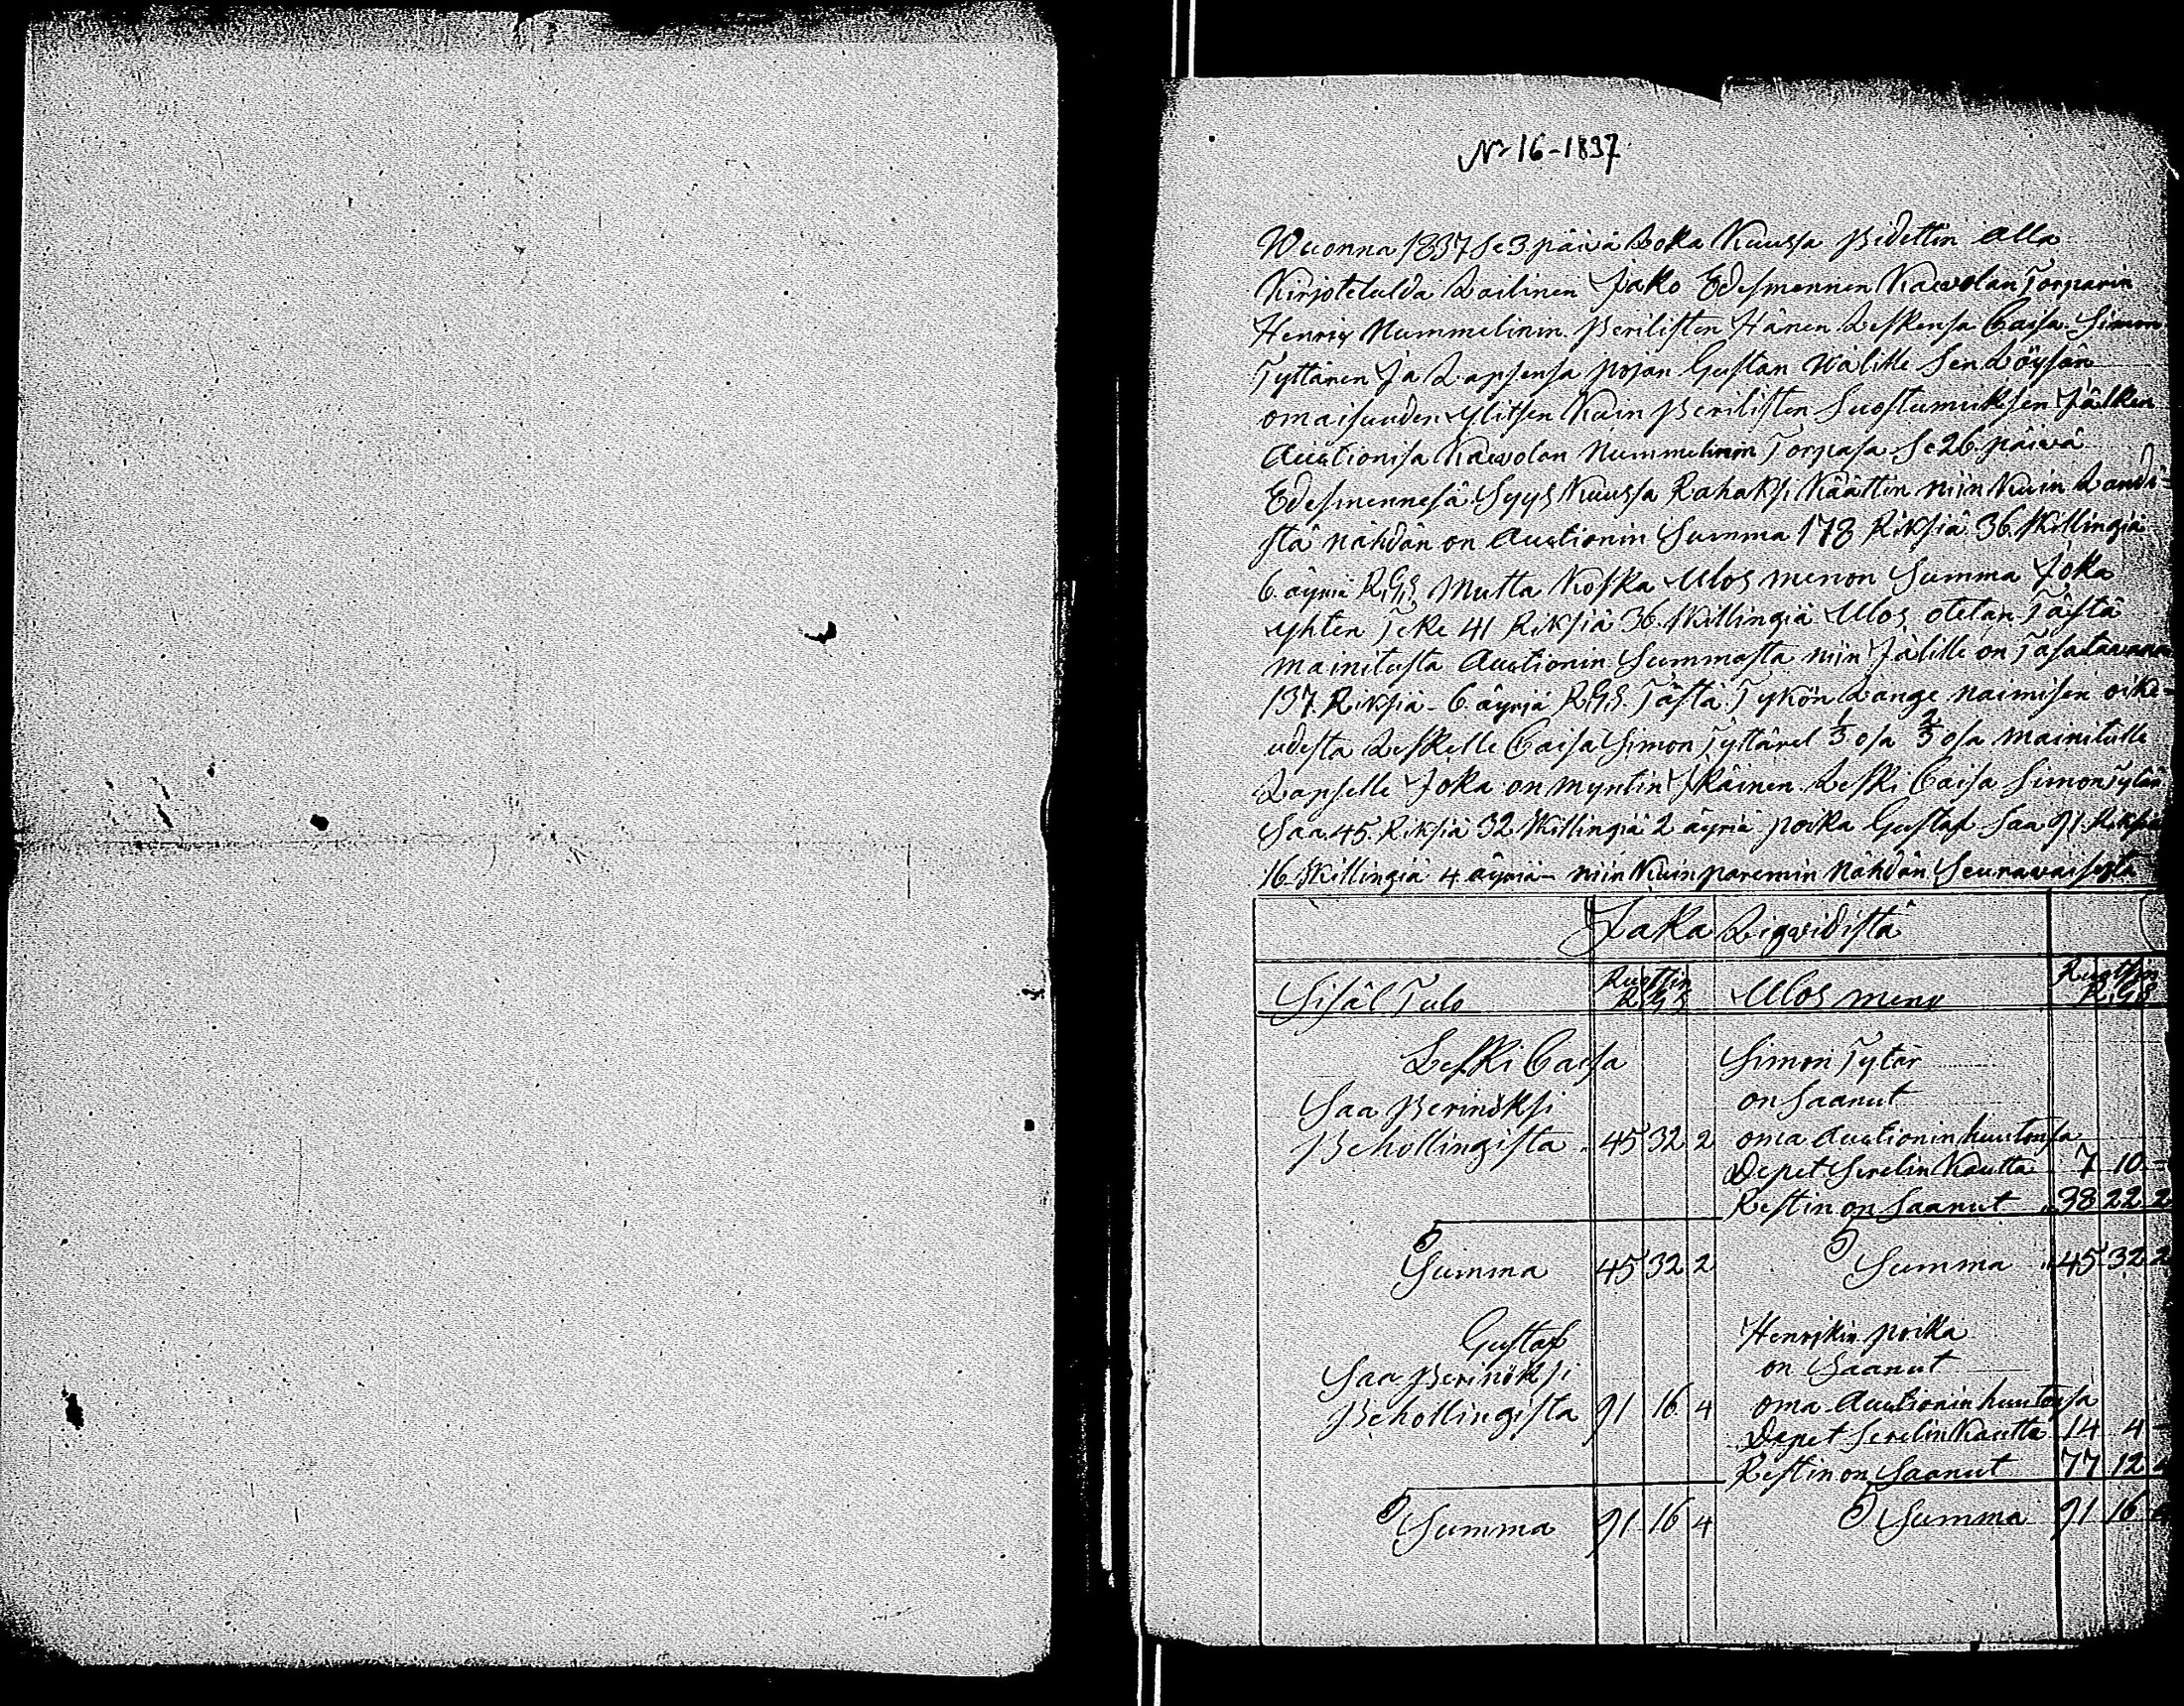 No 16-1837
Wuonna 1837 Se 3 päivä Loka Kuussa pidettin alla
Kirjotetulda Lailinen Jako Edesmennen Kaewolan Torparin
Henrix Nummelinin Perilisten Hänen Leskensa Caisa Simon
Tyttären Ja Lapsensa pojan Gustan wälille Sen Löysän
omaisuuden ylitsen Kuin Perilisten Suostumuksen Jälken
Auctionisa Kaewolan Nummelinin Torpasa Se 26 päivä
Edesmennesä Syys Kuussa Rahaksi Käättin niin Kuin
stä nähdän on Auctionin Summa 178 Riksiä 36 skillingiä
6 äyriä R,G,S Mutta Koska Ulos menon Summa Joka
yhten Teke 41 Riksiä 36 skillingiä Ulos otetan Tästä
mainitusta Auctionin Summasta niin Jälille on
137 Riksiä - 6 äyriä R,G,S. Tästä Tykön Lange naimisen oike-
udesta Leskelle Caisa Simon Tyttärel 1/3 osa 2/3 osa mainitulle
Lapselle Joka on myntin Ikäinen Leski Caisa Simon Tytär
Saa 45 Riksiä 32 skillingiä 2 äyriä poika Gustaf Saa 91 Riksiä
16 skillingiä 4 äyriä - niin Kuin paremin Nähdän Seurawaisesta
Jaka Liqvidistä
Sisäl Tulo Ruottin R G S Ulos meno Ruottin R G S
Leski Caisa Simon Tytär
Saa Perinöksi on Saanut
Behollingista 45 32 2 oma Auctionin huutonsa
Depet Serelin Kautta 7 10 -
Restin on Saanut 38 22 2
Summa 45 32 2 Summa 45 32 2
Gustaf Henrikin poika
Saa Perinöksi on Saanut
Behollingista 91 16 4 oma Auctionin huutonsa
Depet Serelin Kautta 14 4 -
Restin on Saanut 77 12 4
Summa 91 16 4 Summa 91 16 4